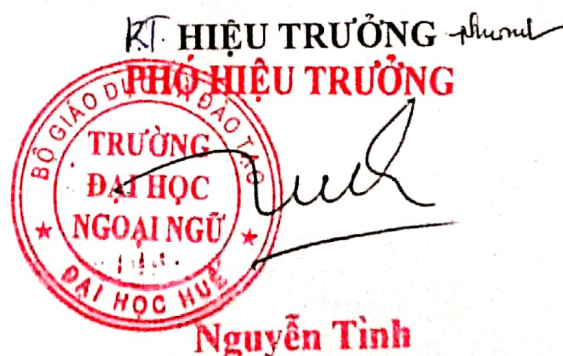 KT. HIỆU TRƯỞNG
PHÓ HIỆU TRƯỞNG
BỘ GIÁO DỤC VÀ ĐÀO TẠO
TRƯỜNG
ĐẠI HỌC
NGOẠI NGỮ
ĐẠI HỌC HUẾ
Nguyễn Tình